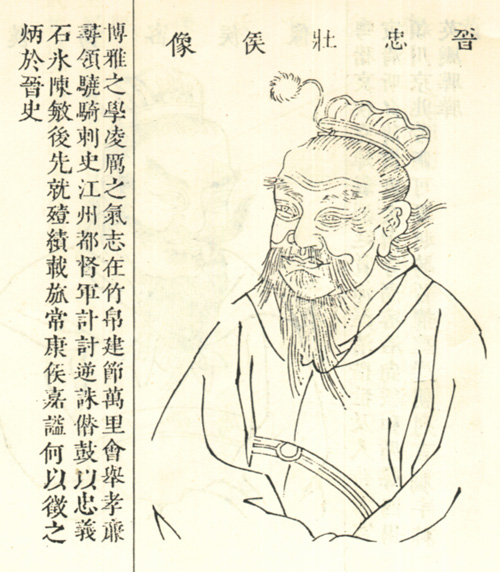 晉忠壯侯像
博雅之學凌厲之氣志在竹帛建節萬里會舉孝亷
尋領驍騎刺史江州都督軍計討逆誅僣鼓以忠義
石氷陳敏後先就殪績載旂常康侯嘉謚何以徵之
炳於晉史